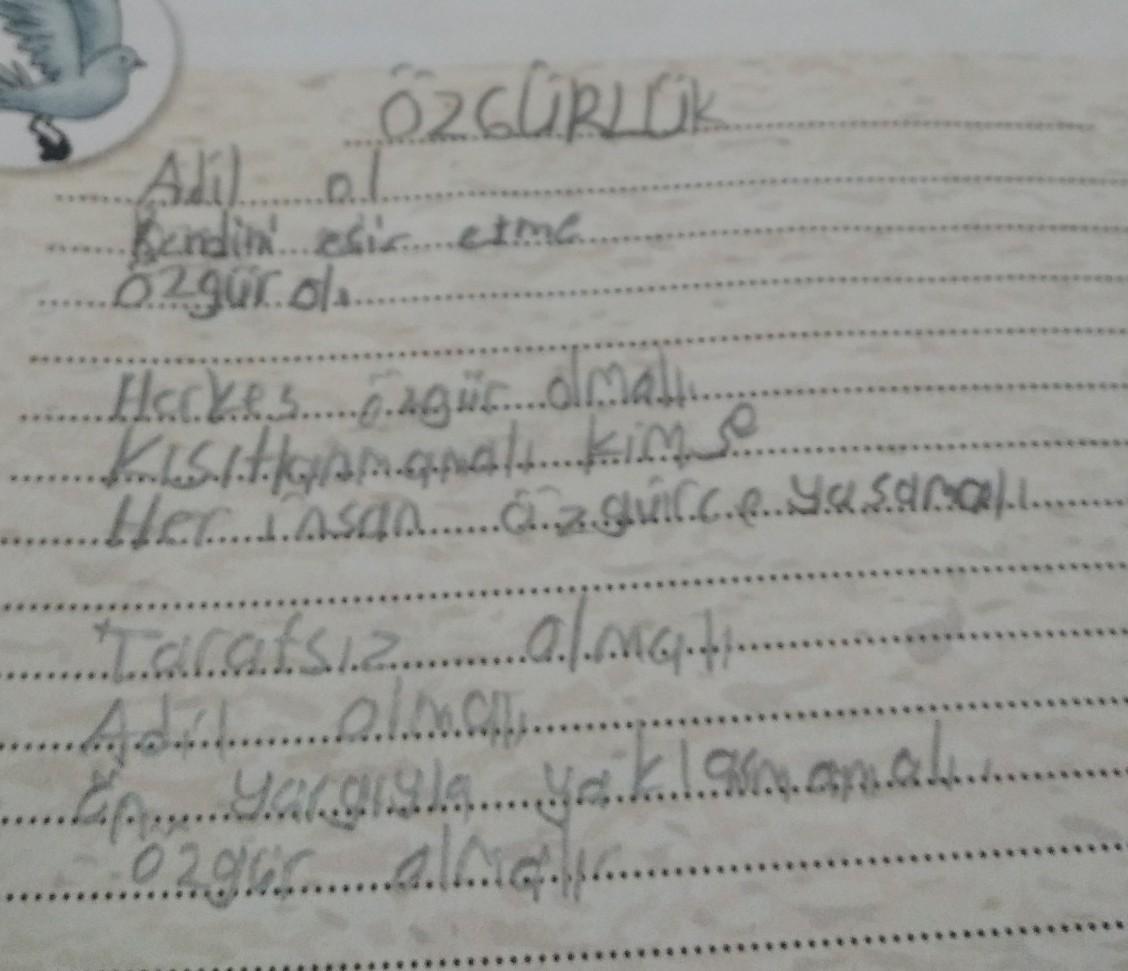 ÖZGÜRLÜK
Adil ol
Kendini esir etme
Özgür ol.
Herkes özgür olmalı
Kısıtlanmamalı kimse
Her insan özgürce yaşamalı
Tarafsız olmalı
Adil olmalı
Ön yargıyla yaklaşmamalı
özgür olmalı